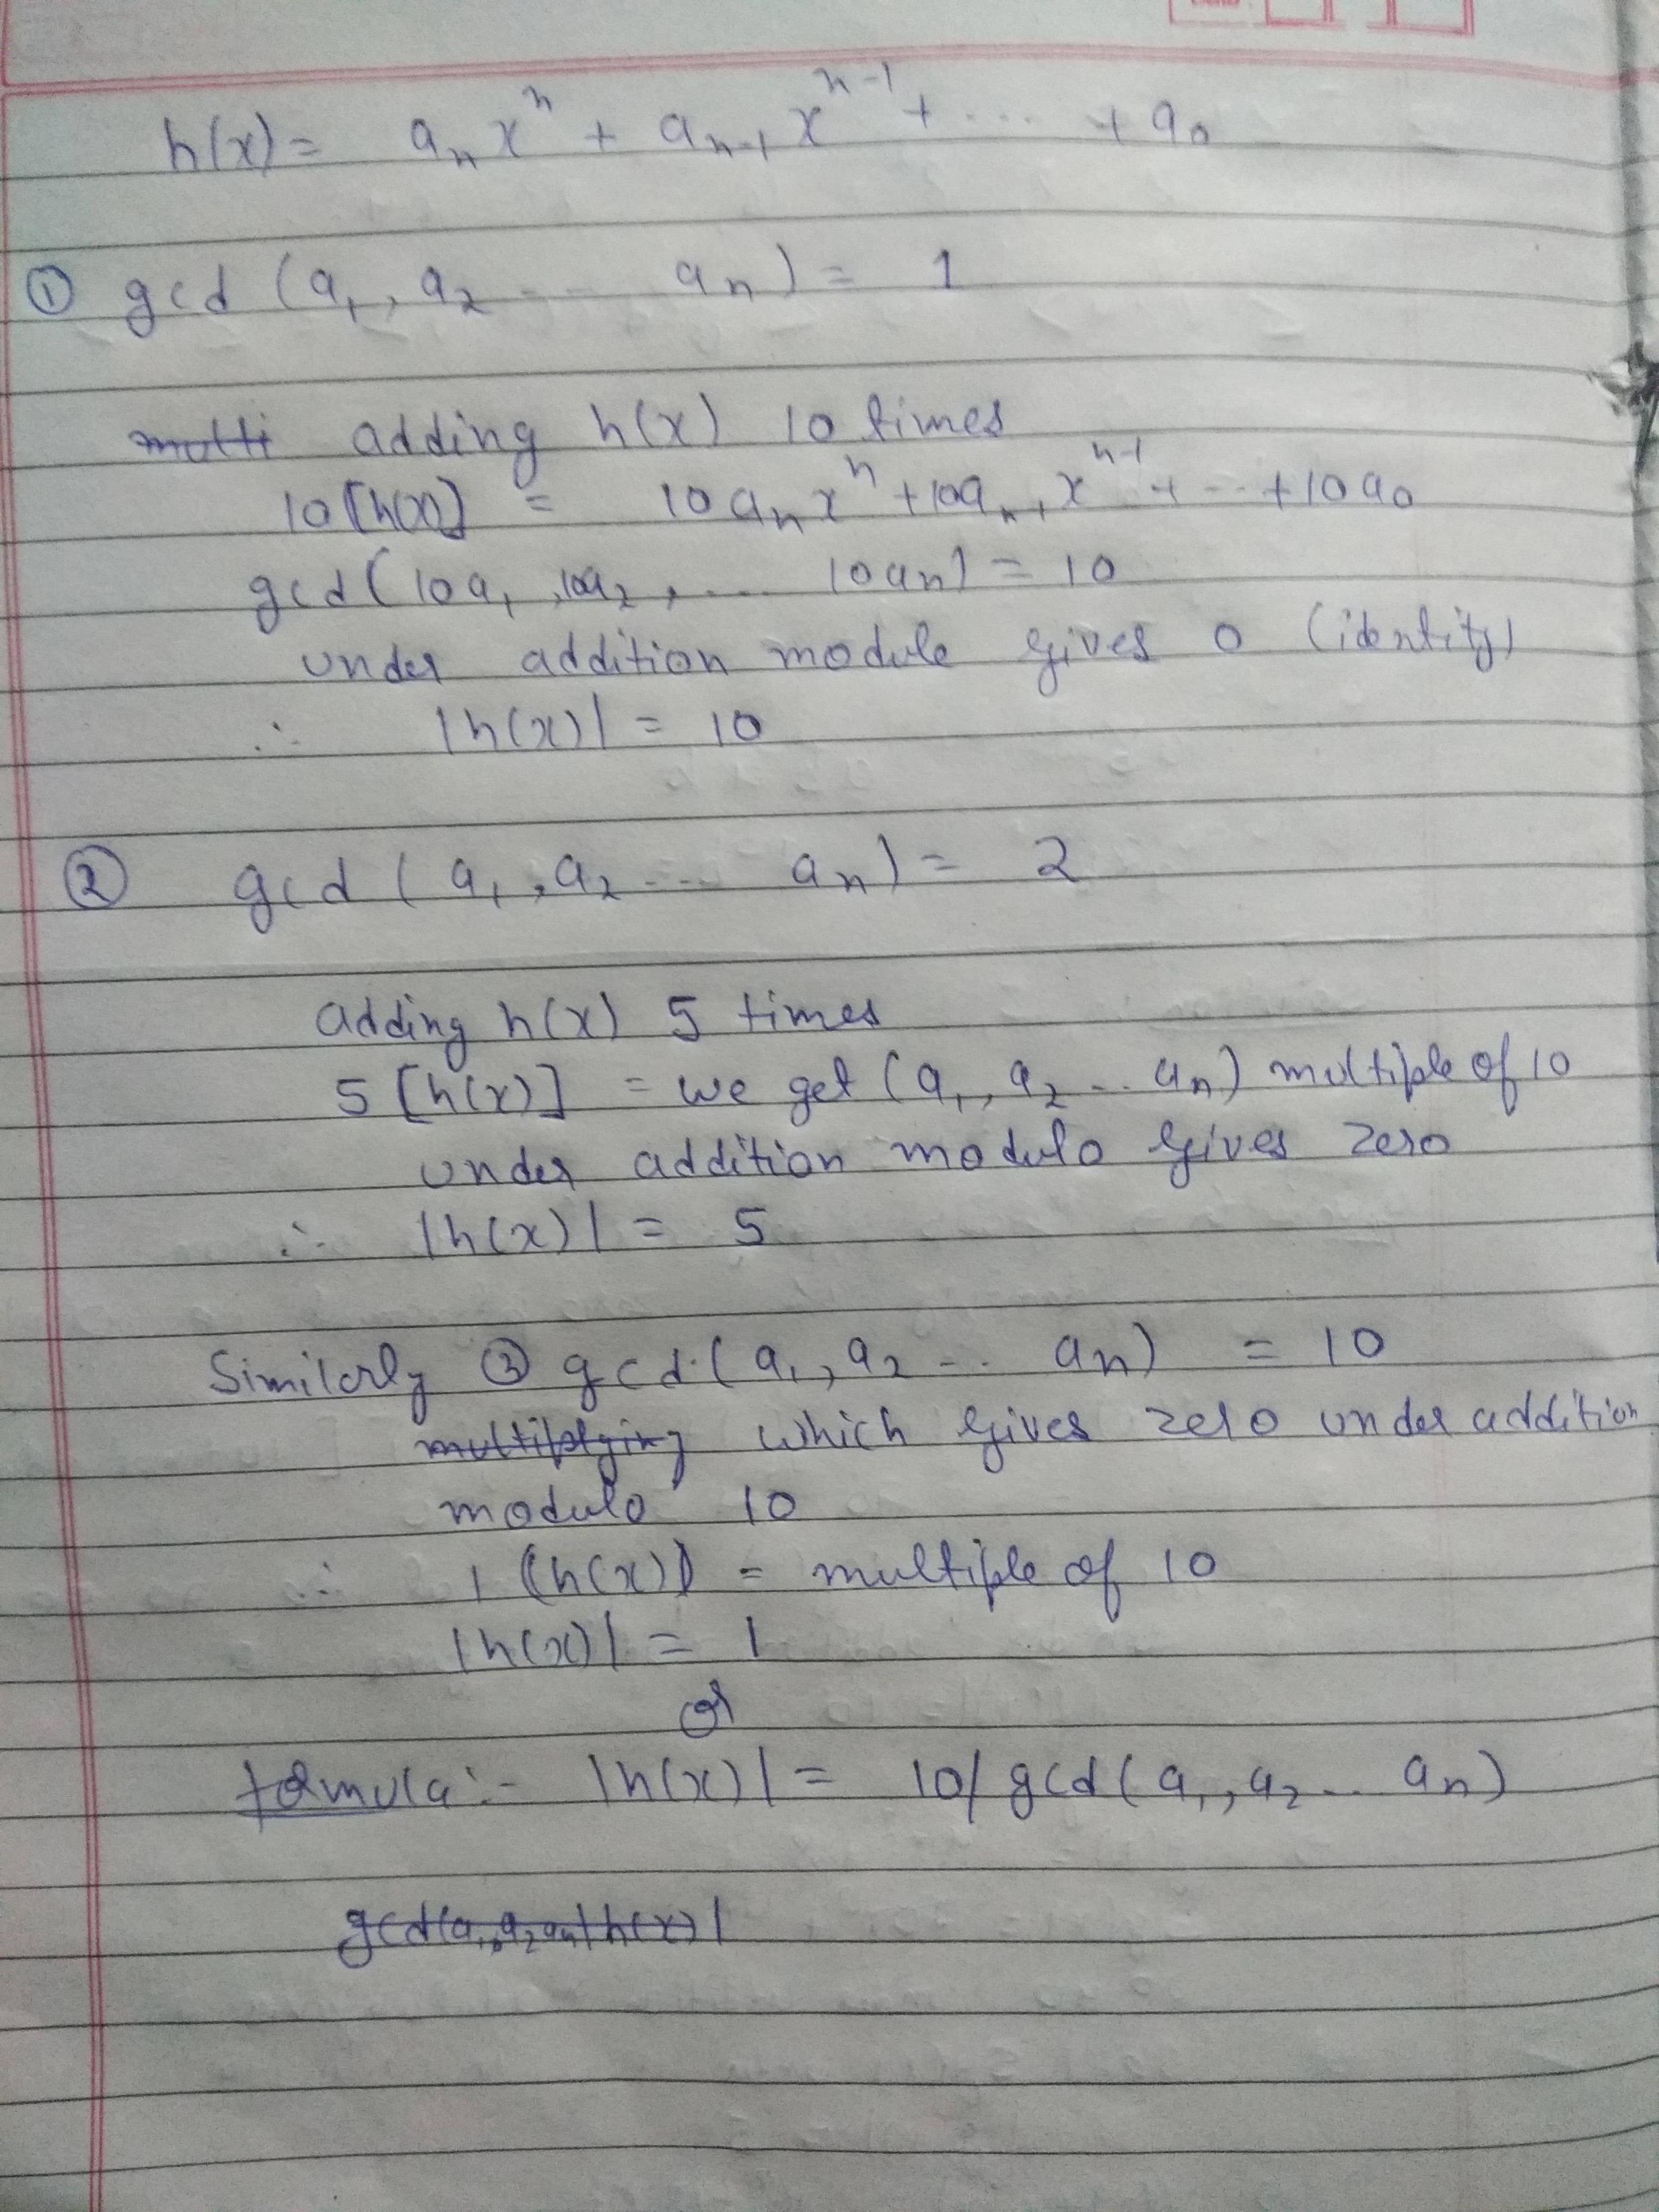 h(x) = aₙxⁿ + aₙ₋₁xⁿ⁻¹ + ... + a₀
① gcd (a₁, a₂ ... aₙ) = 1
multi adding h(x) 10 times
10[h(x)] = 10aₙxⁿ + 10aₙ₋₁xⁿ⁻¹ + ... + 10a₀
gcd(10a₁, 10a₂, ... 10aₙ) = 10
under addition module gives 0 (identity)
∴ |h(x)| = 10
② gcd (a₁, a₂ ... aₙ) = 2
adding h(x) 5 times
5[h(x)] = we get (a₁, a₂ ... aₙ) multiple of 10
under addition modulo gives zero
∴ |h(x)| = 5
Similarly ③ gcd.(a₁, a₂ ... aₙ) = 10
multiplying which gives zero under addition
modulo 10
∴ 1(h(x)) = multiple of 10
|h(x)| = 1
or
formula :- |h(x)| = 10/gcd(a₁, a₂ ... aₙ)
gcd(a₁, a₂ aₙ) h(x)|